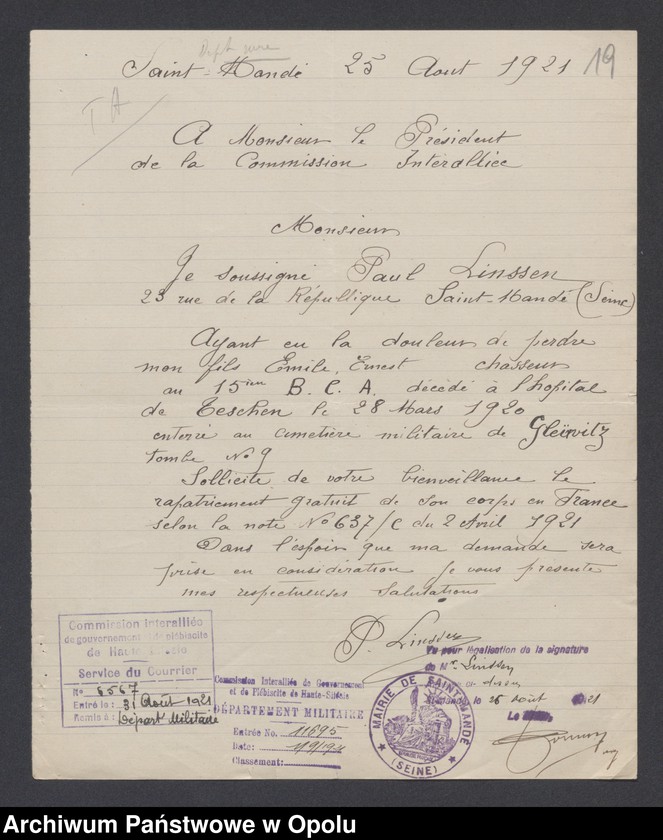 Dept mre
Saint-Mandé 25 Aout 1921
19
T A
A Monsieur le Président
de la Commission Interalliée
Monsieur
Je soussigné Paul Linssen
23 rue de la République Saint-Mandé (Seine)
Ayant eu la douleur de perdre
mon fils Emile, Ernest chasseur
au 15ième B. C. A. décédé à l'hopital
de Teschen le 28 Mars 1920
enterré au cimetière militaire de Gleïwitz
tombe No 9
Sollicite de votre bienveillance le
rapatriement gratuit de son corps en France
selon la note No 637/C du 2 Avril 1921
Dans l'espoir que ma demande sera
prise en considération je vous presente
mes respectueuses salutations
P. Linssen
Commission Interalliée
de gouvernement et de plébiscite
de Haute-Silésie
Service du Courrier
No 6567
Entré le : 31 Août 1921
Remis à : Départ Militaire
Commission Interalliée de Gouvernement
et de Plébiscite de Haute-Silésie
DÉPARTEMENT MILITAIRE
Entrée No. 11695
Date: 1/9/921
Classement:
MAIRIE DE SAINT-MANDÉ
(SEINE)
Vu pour légalisation de la signature
de Mr. Linssen
St-Mandé, le 26 Août 1921
Le
Archiwum Państwowe w Opolu